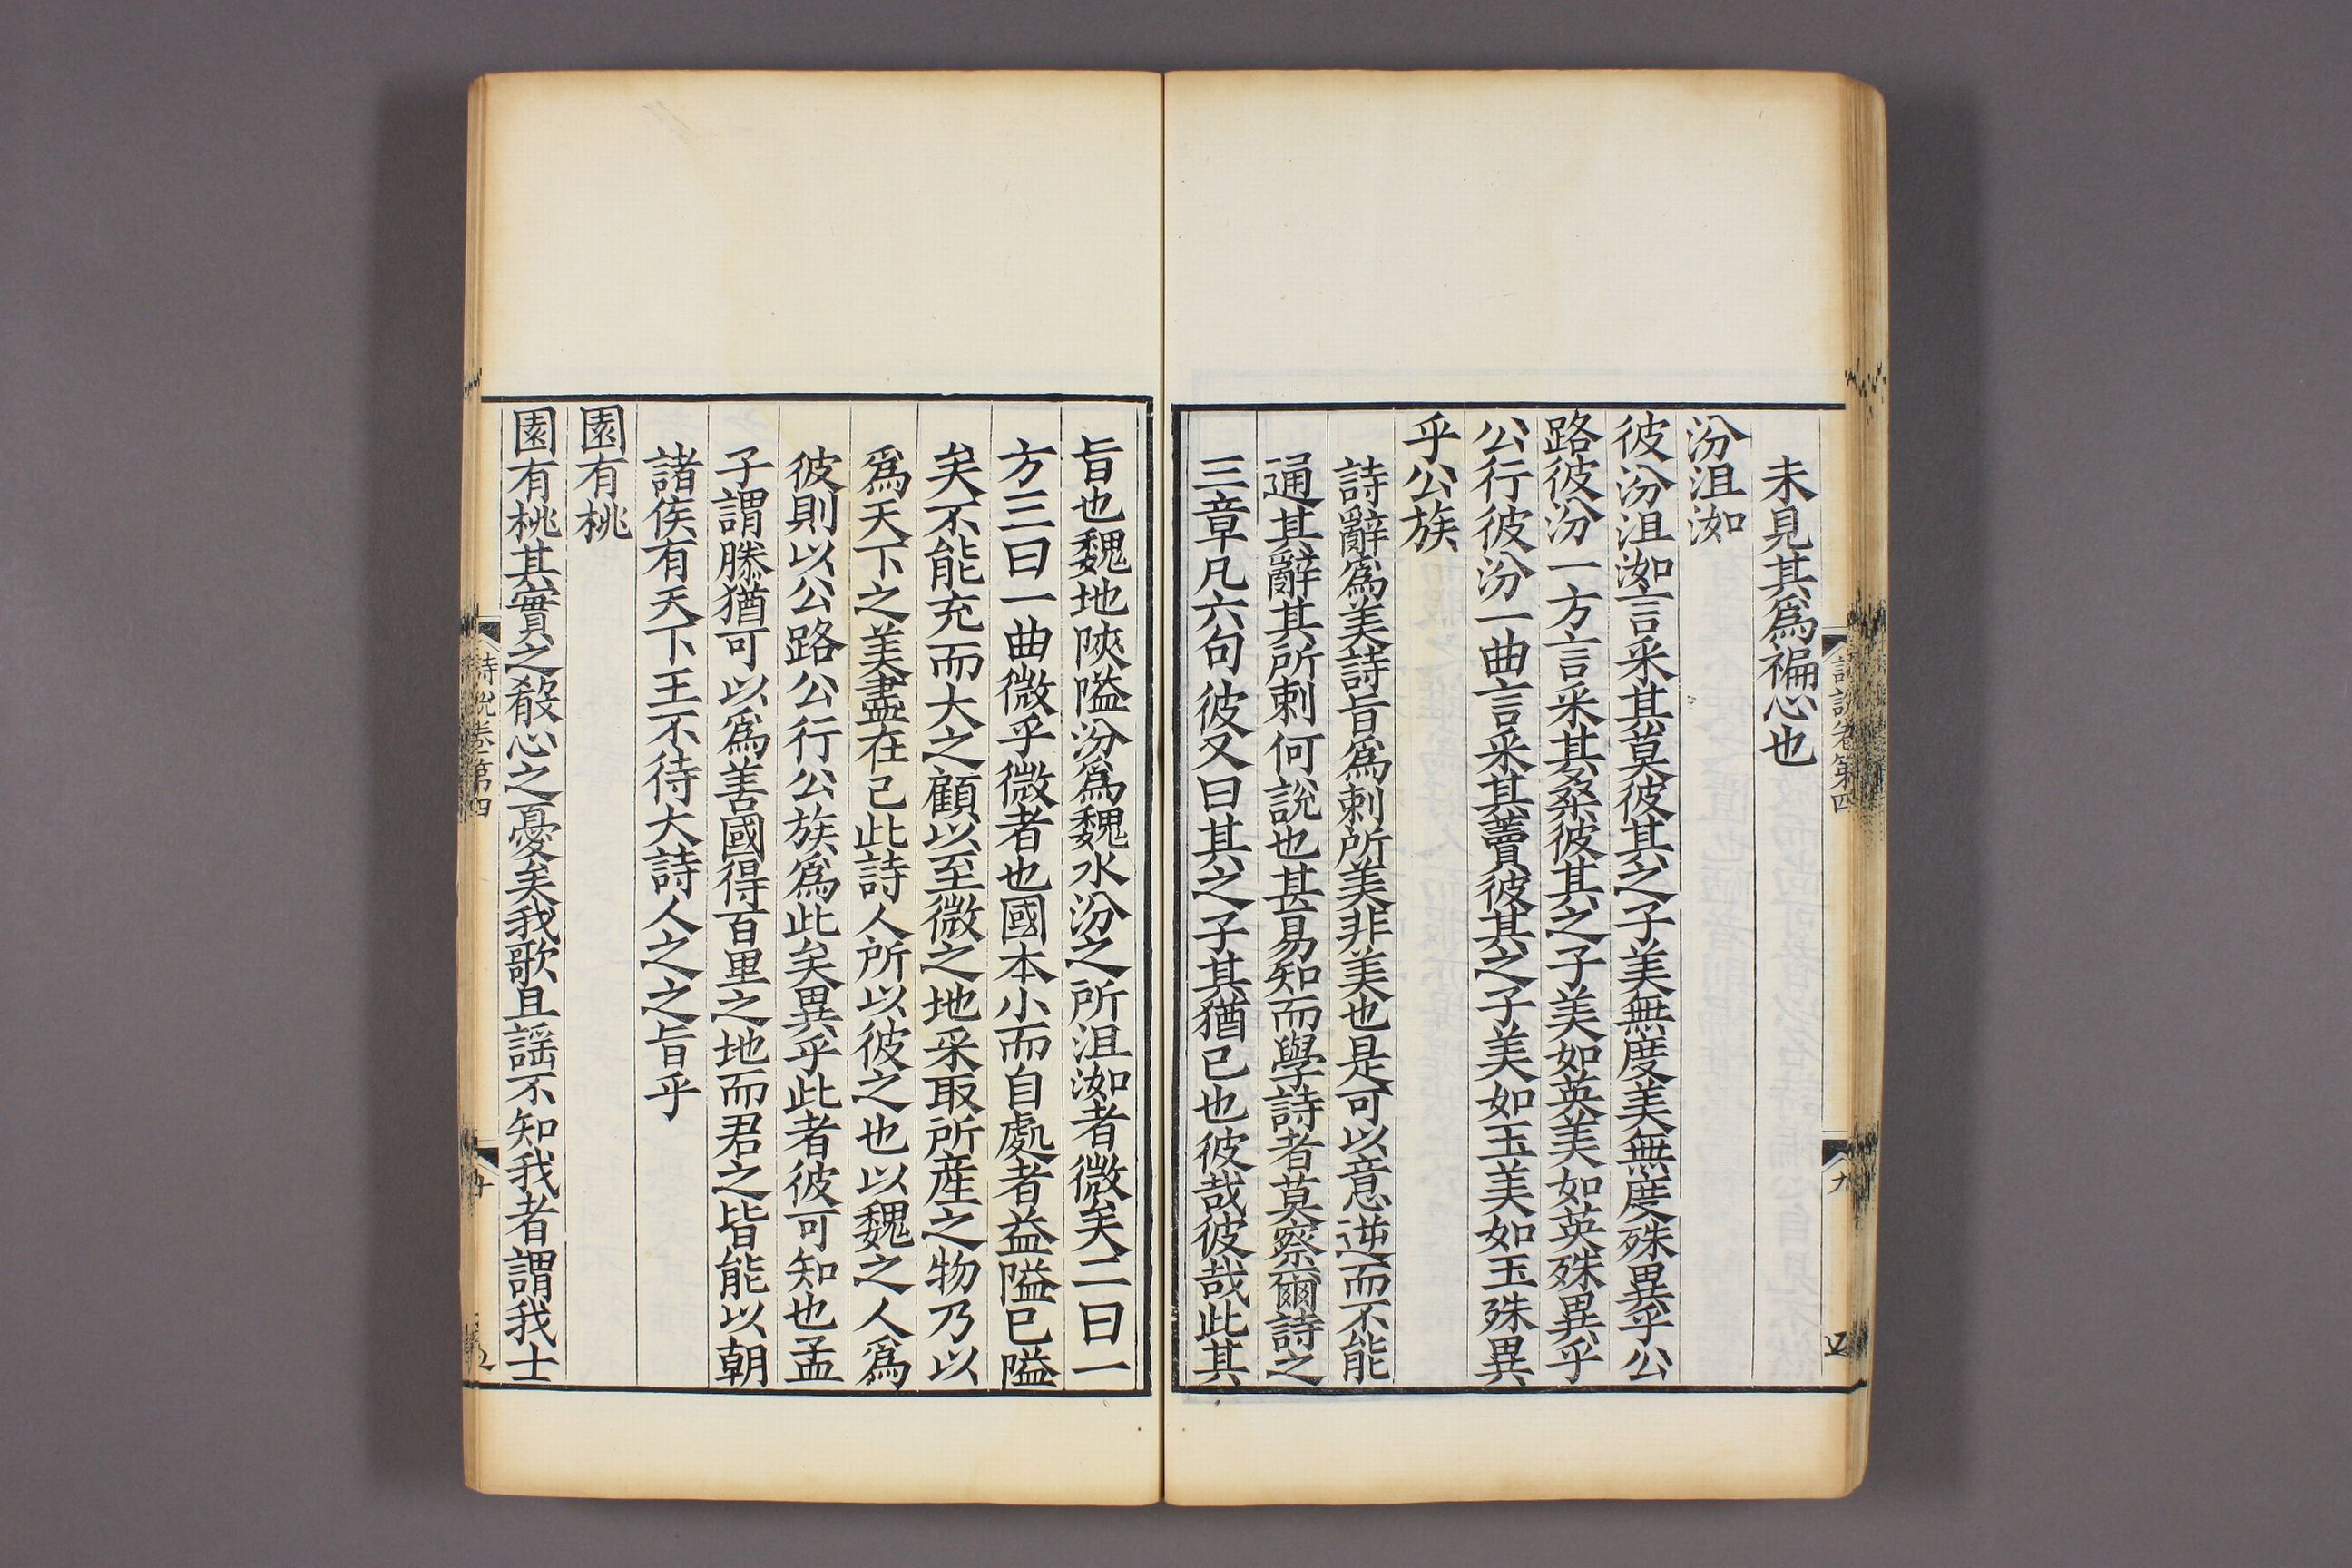 未見其爲褊心也
汾沮洳
彼汾沮洳言采其莫彼其之子美無度美無度殊異乎公
路彼汾一方言采其桑彼其之子美如英美如英殊異乎
公行彼汾一曲言采其藚彼其之子美如玉美如玉殊異
乎公族
詩辭爲美詩旨爲刺所美非美也是可以意逆而不能
通其辭其所刺何說也甚易知而學詩者莫察爾詩之
三章凡六句彼又曰其之子其猶已也彼哉彼哉此其
詩說卷第四
九
旨也魏地陜隘汾爲魏水汾之所沮洳者微矣二曰一
方三曰一曲微乎微者也國本小而自處者益隘已隘
矣不能充而大之顧以至微之地采取所産之物乃以
爲天下之美盡在己此詩人所以彼之也以魏之人爲
彼則以公路公行公族爲此矣異乎此者彼可知也孟
子謂滕猶可以爲善國得百里之地而君之皆能以朝
諸侯有天下王不待大詩人之之旨乎
園有桃
園有桃其實之殽心之憂矣我歌且謡不知我者謂我士
詩說卷第四
十